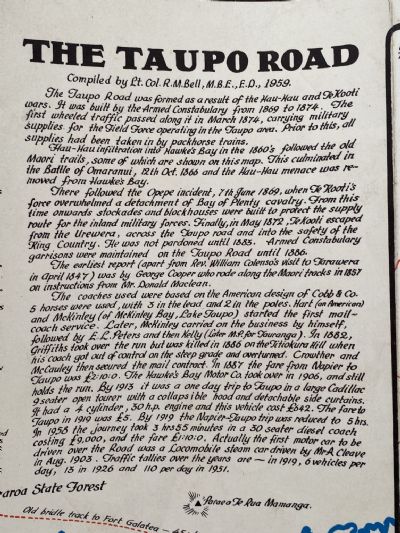 THE TAUPO ROAD
Compiled by Lt. Col. R.M. Bell, M.B.E., E.D., 1959.
The Taupo Road was formed as a result of the Hau-Hau and Te Kooti
wars. It was built by the Armed Constabulary from 1869 to 1874. The
first wheeled traffic passed along it in March 1874, carrying military
supplies for the Field Force operating in the Taupo area. Prior to this, all
supplies had been taken in by packhorse trains.
Hau-Hau infiltration into Hawke's Bay in the 1860's followed the old
Maori trails, some of which are shown on this map. This culminated in
the Battle of Omaranui, 12th Oct. 1866 and the Hau-Hau menace was re-
moved from Hawke's Bay.
There followed the Opepe incident, 7th June 1869, when Te Kooti's
force overwhelmed a detachment of Bay of Plenty cavalry. From this
time onwards stockades and blockhouses were built to protect the supply
route for the inland military forces. Finally, in May 1872, Te Kooti escaped
from the Urewera, across the Taupo road and into the safety of the
King Country. He was not pardoned until 1883. Armed Constabulary
garrisons were maintained on the Taupo Road until 1886.
The earliest report (apart from Rev. William Colenso's visit to Tarawera
in April 1847) was by George Cooper who rode along the Maori tracks in 1857
on instructions from Mr. Donald Maclean.
The coaches used were based on the American design of Cobb & Co.
5 horses were used, with 3 in the lead and 2 in the poles. Hart (an American)
and McKinley (of McKinley Bay, Lake Taupo) started the first mail-
coach service. Later, McKinley carried on the business by himself,
followed by E.L. Peters and then Kelly (Later M.P. for Tauranga). In 1882,
Griffiths took over the run but was killed in 1886 on the Titiokura Hill when
his coach got out of control on the steep grade and overturned. Crowther and
McCauley then secured the mail contract. In 1887 the fare from Napier to
Taupo was £2:10:0. The Hawke's Bay Motor Co. took over in 1906, and still
holds the run. By 1913 it was a one day trip to Taupo in a large Cadillac
9 seater open tourer with a collapsible hood and detachable side curtains.
It had a 4 cylinder, 30 h.p. engine and this vehicle cost £842. The fare to
Taupo in 1919 was £5. By 1919 the Napier-Taupo trip was reduced to 5 hrs.
In 1958 the journey took 3 hrs 55 minutes in a 30 seater diesel coach
costing £9,000, and the fare £1:10:0. Actually the first motor car to be
driven over the Road was a Locomobile steam car driven by Mr A Cleave
in Aug. 1903. Traffic tallies over the years are — in 1919, 6 vehicles per
day, 13 in 1926 and 110 per day in 1951.
aroa State Forest
Parae o Te Rua Mamanga.
Old bridle track to Fort Galatea